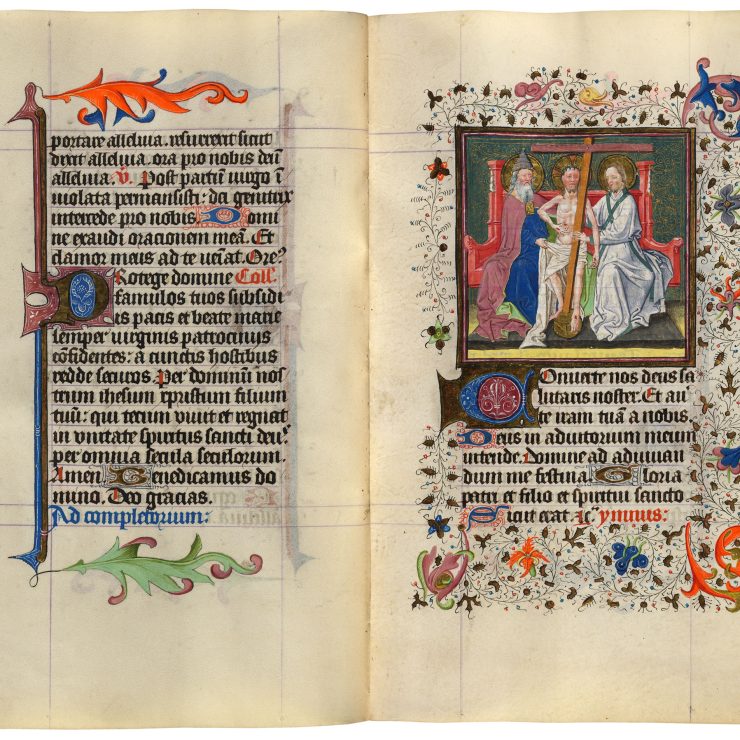 portare alleluia. resurrexit sicut
dixit alleluia. ora pro nobis deũ
alleluia. V. Post partum uirgo i
uiolata permansisti: dei genitrix
intercede pro nobis Domi
ne exaudi oracionem meã. Et
clamor meus ad te ueniat. Ore?
Protege domine Coll.
famulos tuos subsidi
is pacis et beate marie
semper uirginis patrocinijs
cõfidentes: a cunctis hostibus
redde securos. Per dominũ nos
trum ihesum xpistum filium
tuũ: qui tecum uiuit et regnat
in unitate spiritus sancti deu?
per omnia secula seculorum.
Amen Benedicamus do
mino. Deo gracias.
Ad completorium:
Conuerte nos deus sa
lutaris noster. Et au
te iram tuã a nobis.
Deus in adiutorium meum
intende. Domine ad adiuuan
dum me festina Gloria
patri et filio et spiritui sancto
Sicut erat. ymnus: